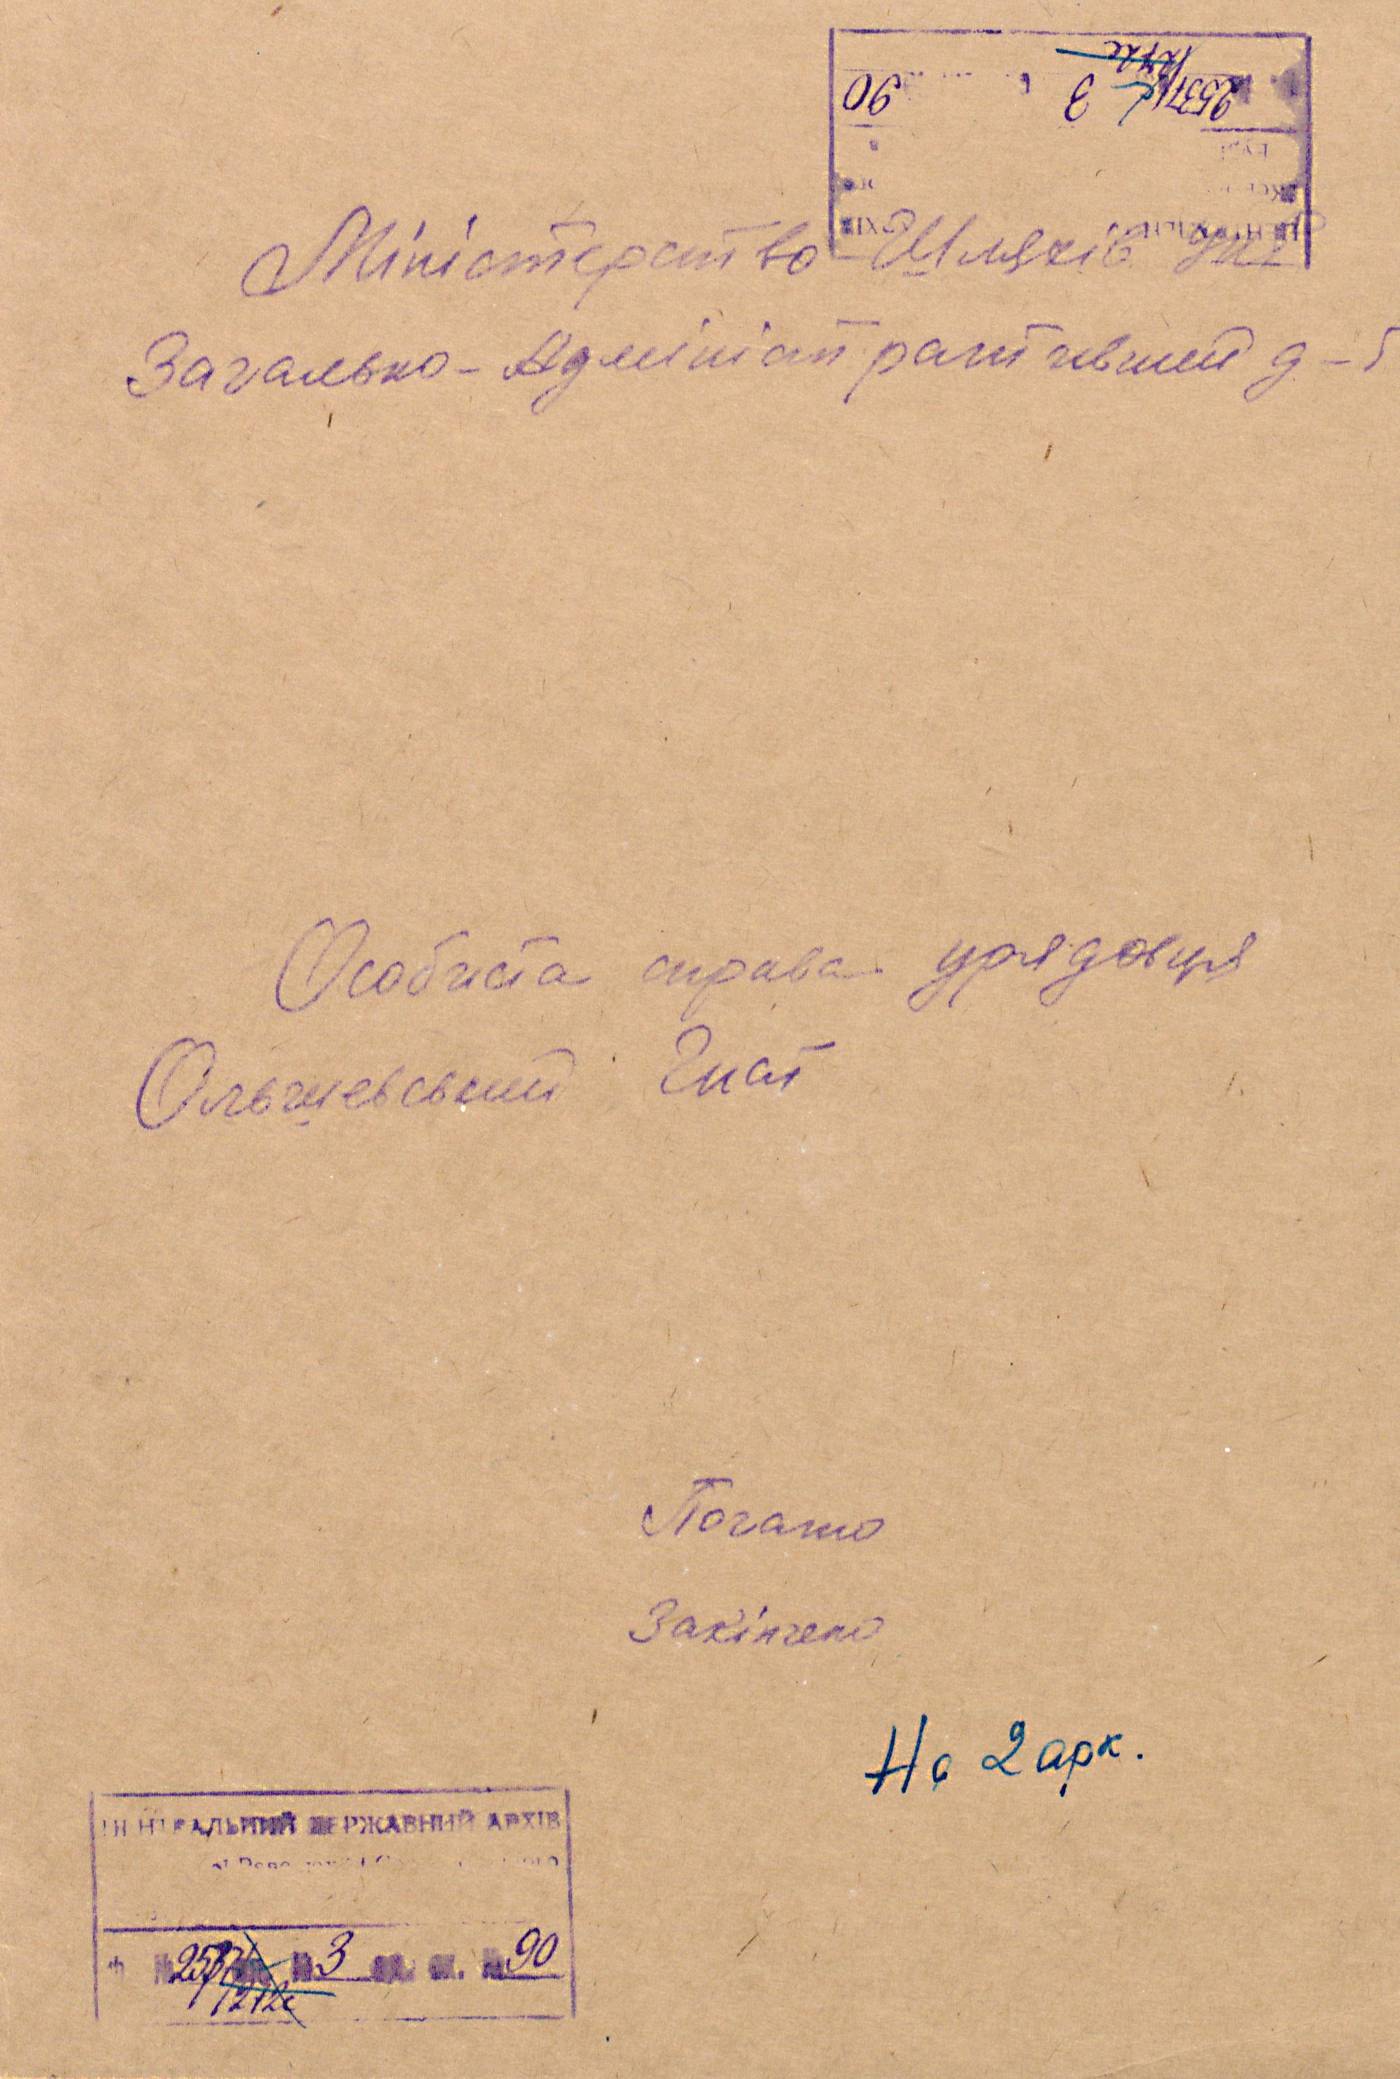 2537 3 90
Міністерство Шляхів УНР
Загально-Адміністративний д-т
Особиста справа урядовця
Ольшевський Гнат
Почато
Закінчено
На 2 арк.
ЦЕНТРАЛЬНИЙ ДЕРЖАВНИЙ АРХІВ
№ 2537 № 3 од. зб. № 90